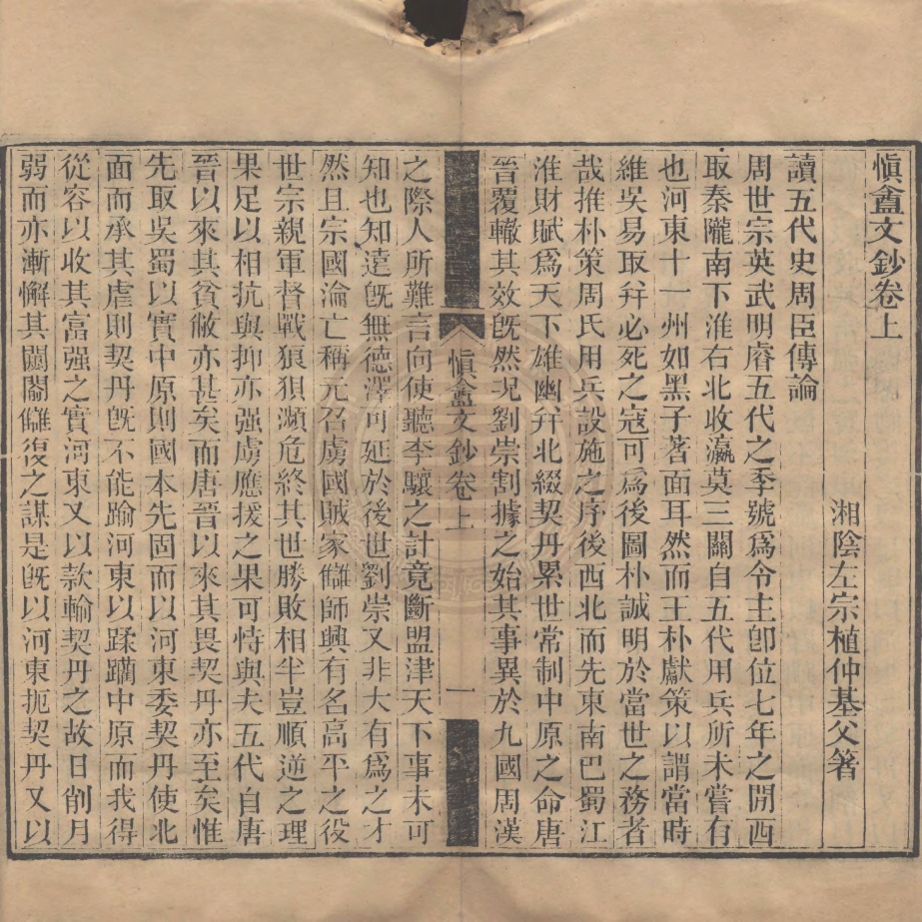 慎盦文鈔卷上
湘陰左宗植仲基父箸
讀五代史周臣傳論
周世宗英武明睿五代之季號爲令主卽位七年之閒西
取秦隴南下淮右北收瀛莫三關自五代用兵所未嘗有
也河東十一州如黑子著面耳然而王朴獻策以謂當時
維吳易取幷必死之寇可爲後圖朴誠明於當世之務者
哉推朴策周氏用兵設施之序後西北而先東南巴蜀江
淮財賦爲天下雄幽幷北綴契丹累世常制中原之命唐
晉覆轍其效旣然況劉崇割據之始其事異於九國周漢
慎盦文鈔卷上
一
之際人所難言向使聽李驤之計竟斷盟津天下事未可
知也知遠旣無德澤可延於後世劉崇又非大有爲之才
然且宗國淪亡稱元召虜國賊家讎師興有名高平之役
世宗親軍督戰狼狽瀕危終其世勝敗相半豈順逆之理
果足以相抗與抑亦强虜應援之果可恃與夫五代自唐
晉以來其貧敝亦甚矣而唐晉以來其畏契丹亦至矣惟
先取吳蜀以實中原則國本先固而以河東委契丹使北
面而承其虐則契丹旣不能踰河東以蹂躪中原而我得
從容以收其富强之實河東又以款輸契丹之故日削月
弱而亦漸懈其鬭鬩讎復之謀是旣以河東扼契丹又以